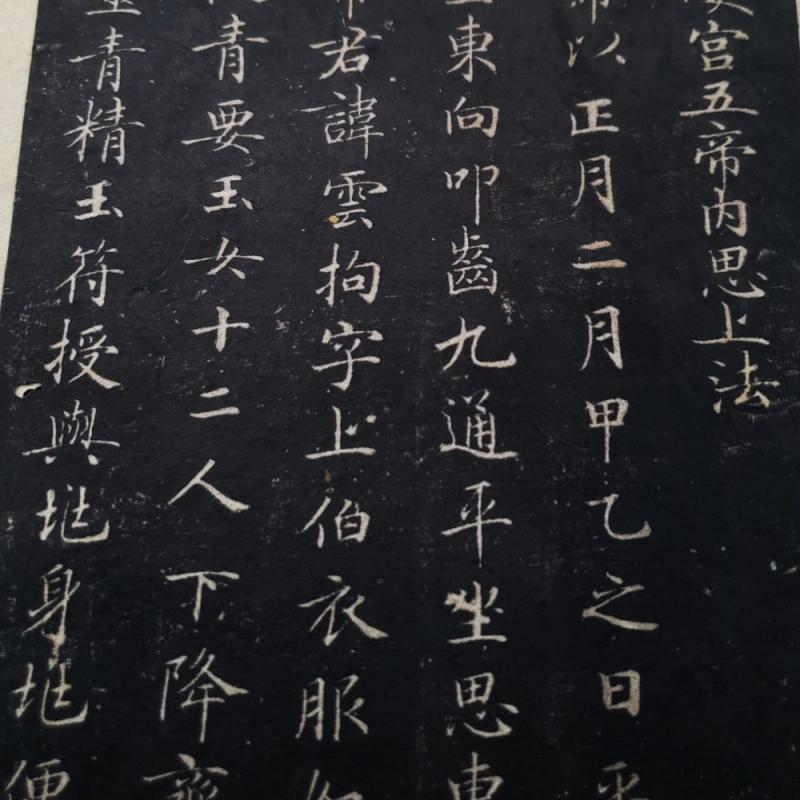 宮五帝內思上法
以正月二月甲乙之日平
東向叩齒九通平坐思東
帝君諱雲拘字上伯衣服如
青要玉女十二人下降齋
靈青精玉符授與兆身兆便